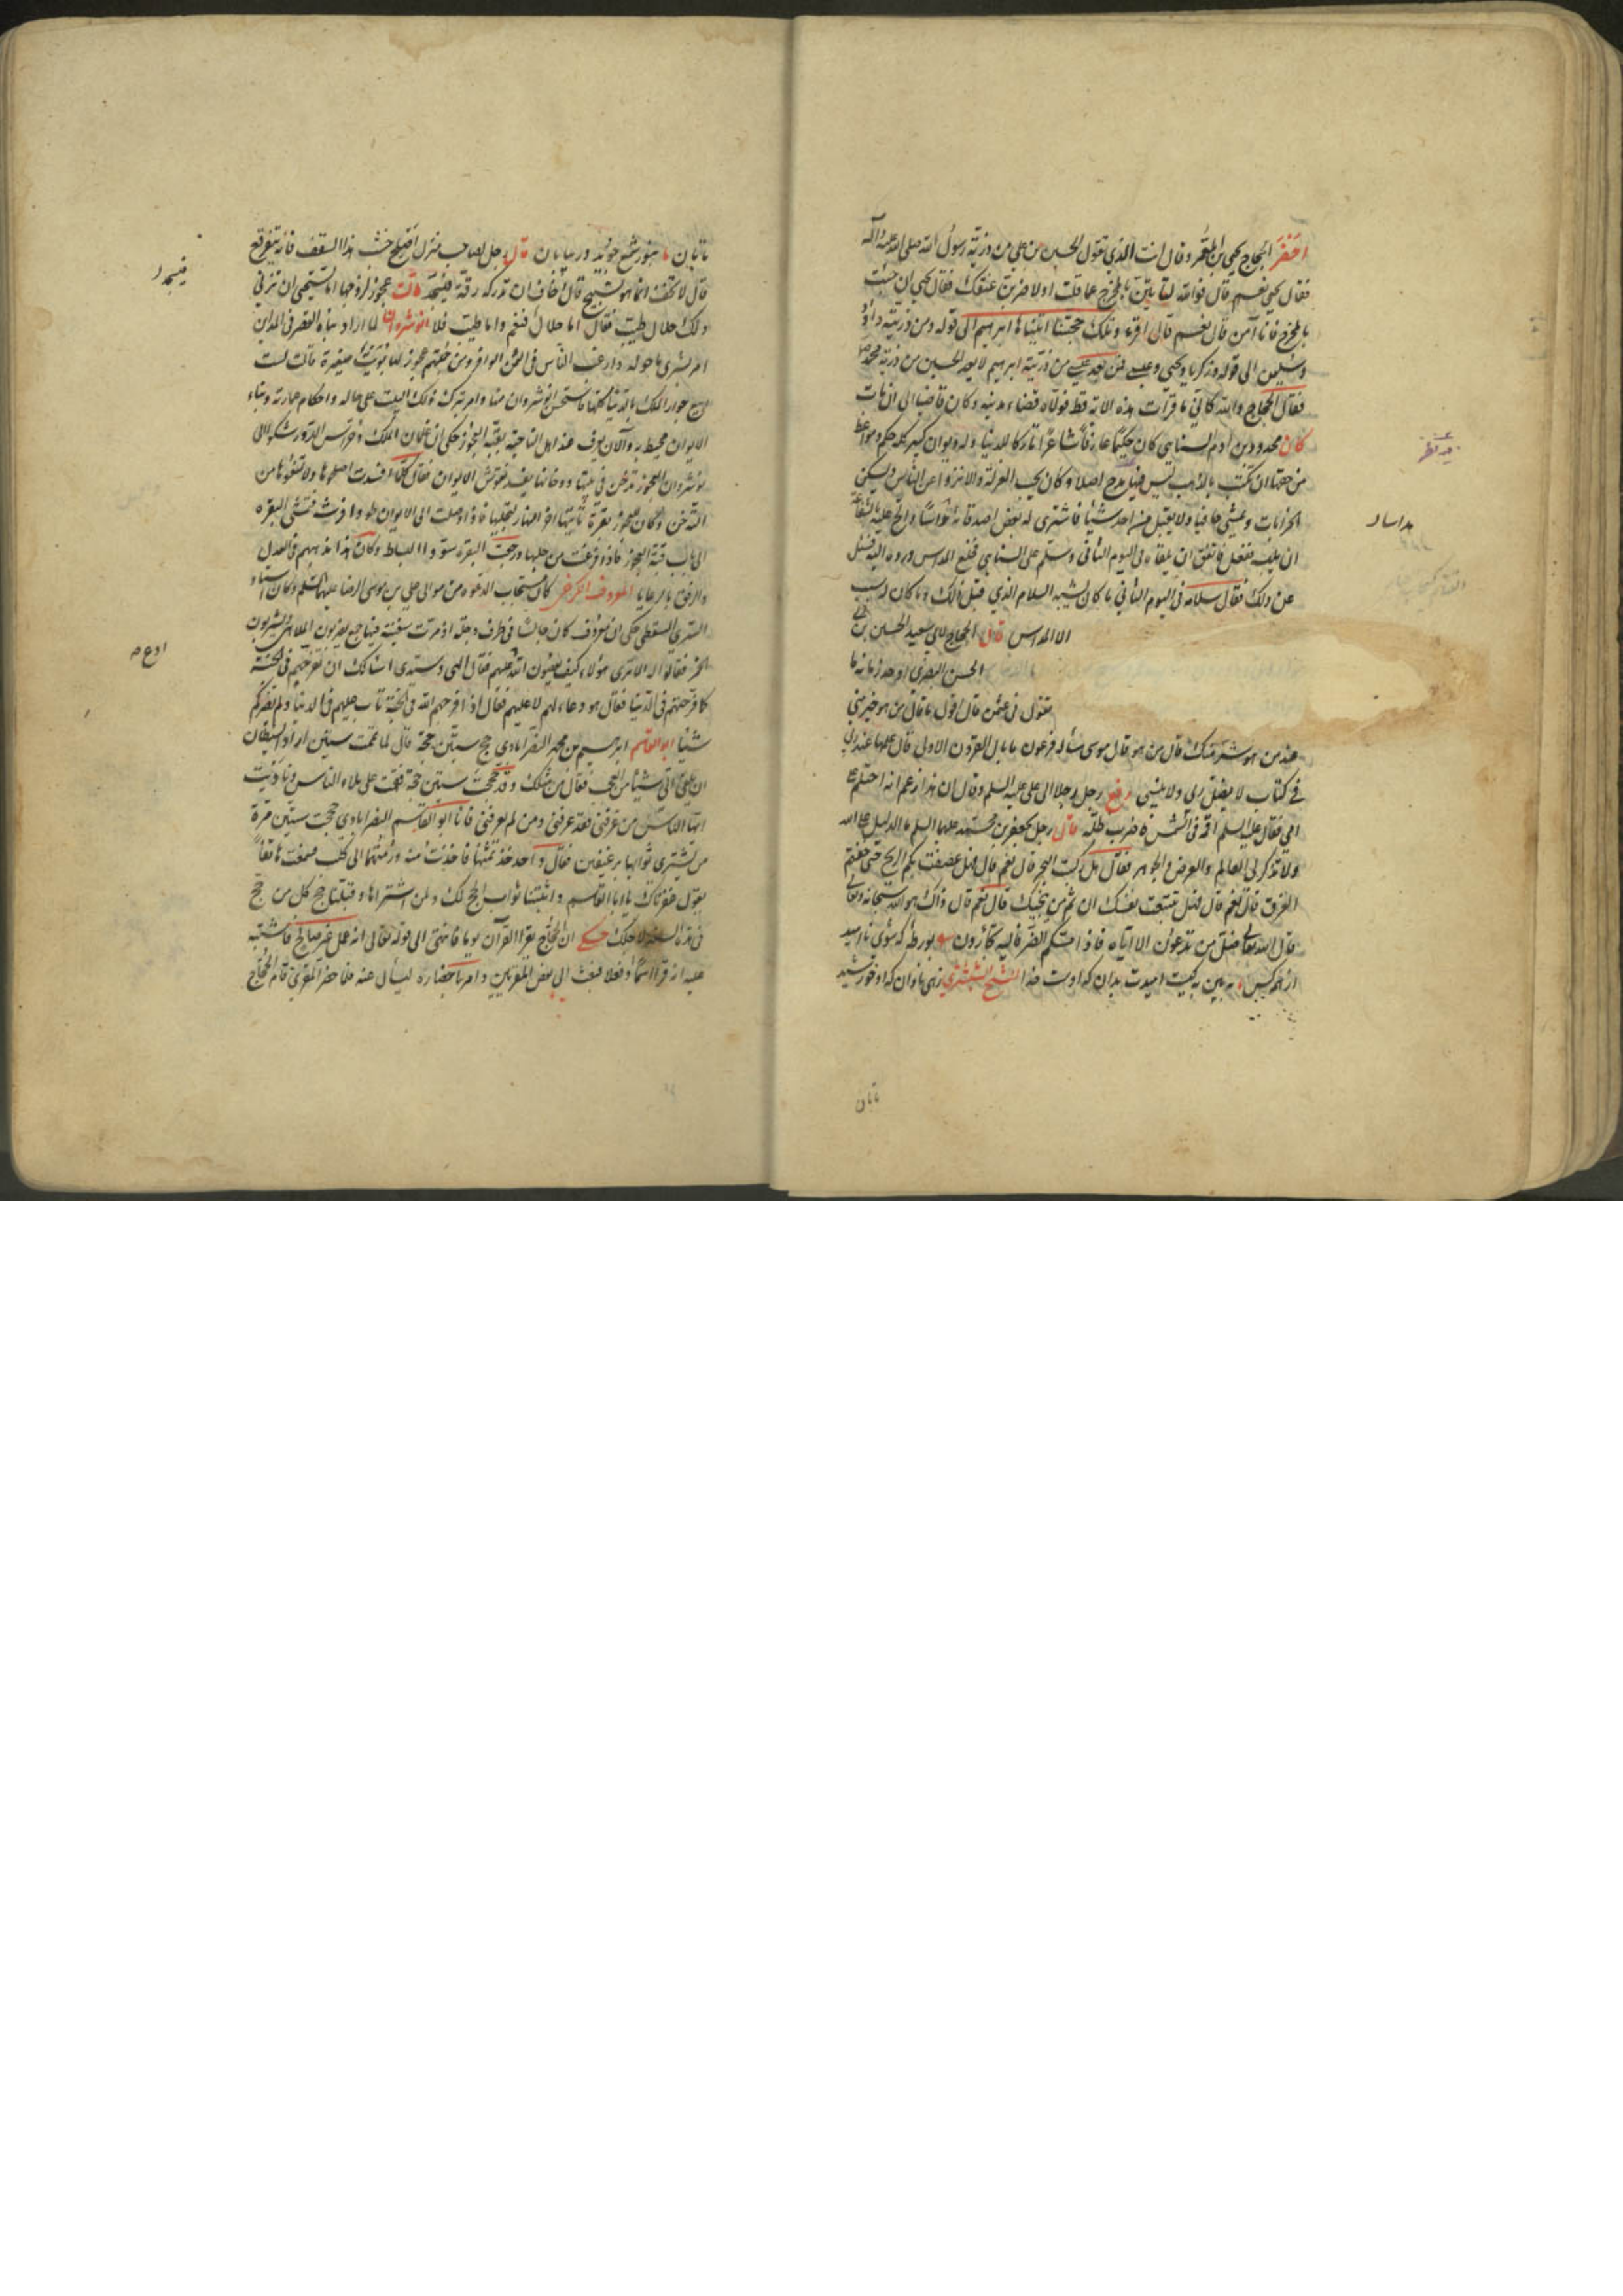 احضر الحجاج يحيى بن المعمر وقال انت الذي تقول الحسين بن علي من ذرية رسول الله صلى الله عليه وآله
فقال يحيى نعم قال فوالله لتأتين بالمخرج عما قلت او لاضربن عنقك فقال يحيى ان جئت
بالمخرج فانا آمن قال نعم قال اقرء وتلك حجتنا اتيناها ابراهيم الى قوله ومن ذريته داود
وسليمن الى قوله وزكريا ويحيى وعيسى فمن يعد عيسى من ذرية ابراهيم لا يعد الحسين من ذرية محمد ص
فقال الحجاج والله كاني ما قرأت هذه الاية قط فولاه قضاء مدينه وكان قاضيا الى ان مات
كان محدود بن ادم السنايي كان حكيما عارفا شاعرا تاركا للدنيا وله ديوان كبير كله حكم ومواعظ
من حقها ان تكتب بالذهب ليس فيها مدح اصلا وكان يحب العزلة والانزواء عن الناس ويسكن
الخرابات ويمشي حافيا ولا يقبل من احد شيئا فاشترى له بعض اصدقائه مداسا والح عليه بالشفاعة
ان يلبسه ففعل فاتفق ان يلقاه في اليوم الثاني وسلم على السنايي فخلع المداس ورده اليه فسئل
عن ذلك فقال سلامه في اليوم الثاني ما كان يشبه السلام الذي قبل ذلك وما كان له سبب
الا المداس قال الحجاج لابي سعيد الحسين بن
الحسن البصري اوحد زمانه ما
تقول في عثمن قال اقول ما قال من هو خير مني
عند من هو شر منك قال من هو قال موسى سأله فرعون ما بال القرون الاولى قال علمها عند ربي
في كتاب لا يضل ربي ولا ينسى رفع رجل رجلا الى علي عليه السلم وقال ان هذا زعم انه احتلم على
امي فقال عليه السلم اقمه في الشمس فاضرب ظله قال رجل لجعفر بن محمد عليهما السلم ما الدليل على الله
ولا تذكر لي العالم والعرض والجوهر فقال هل ركبت البحر قال نعم قال فهل عصفت بكم الريح حتى خفتم
الغرق قال نعم قال فهل تتبعت نفسك ان ثم من ينجيك قال نعم قال ذاك هو الله سبحانه وتعالى
قال الله تعالى ضل من تدعون الا اياه فاذا مسكم الضر فاليه تجأرون بورطه كه شوي نااميد
از همه كس به بين به كيست اميدت بدان كه اوست خدا الشيخ الشبستري زهى نادان كه او خورشيد
تابان
تابان بنور شمع جويد در بيابان قال رجل لصاحب منزل اصلح خشب هذا السقف فانه يتفرقع
قال لا تخف انما هو يسبح قال اخاف ان تدركه رقة فيسجد قالت عجوز لزوجها اما تستحي ان تزني
ولك حلال طيب فقال اما حلال فنعم واما طيب فلا انوشروان لما اراد بناء القصر في المداين
امر بشرى ما حوله وارغب الناس في الثمن الوافر ومن جملتهم عجوز لها بويت صغيرة قالت لست
ابيع جوار الملك بالدنيا كلها فاستحسن انوشروان منها وامر بترك ذلك البيت على حاله واحكام عمارته وبناء
الايوان محيط به والآن يعرف عند اهل الناحية بقبة العجوز حكى ان غلمان الملك وحراس الدور شكوا الى
نوشروان العجوز تدخن في بيتها ودخانها يفسد نقوش الايوان فقال كلما افسدت اصلحوها ولا تمنعوها من
التدخن وكان للعجوز بقرة تأتيها اخر النهار لتحلبها فاذا وصلت الى الايوان طووا فرشه فتمشى البقره
الى باب قبة العجوز فاذا فرغت من حلبها ورجعت البقره سووا البساط وكان هذا مذهبهم في العدل
والرفق بالرعايا المعروف الكرخي كان مستجاب الدعوه من موالي علي بن موسى الرضا عليهما السلم وكان استاد
السري السقطي حكى ان معروف كان جالسا في طرف دجلة اذ مرت سفينة فيها جمع يضربون الملاهي ويشربون
الخمر فقالوا له الا ترى هؤلاء كيف يعصون الله ادع عليهم فقال الهي وسيدي اسألك ان تفرحهم في الجنة
كما فرحتهم في الدنيا فقال هو دعاء لهم لا عليهم فقال اذا فرحهم الله في الجنة تاب عليهم في الدنيا ولم يضركم
شيئا ابو القاسم ابرهيم بن محمد النصرابادي حج ستين حجة قال لما تمت ستين اراد الشيطان
ان يلقي الى شيئا من العجب فقال من مثلك وقد حججت ستين حجة فقمت على ملاء الناس وناديت
ايها الناس من عرفني فقد عرفني ومن لم يعرفني فانا ابو القاسم النصرابادي حججت ستين مرة
من يشتري ثوابها برغيفين فقال واحد خذ ثمنها فاخذت منه ورميتهما الى كلب فسمعت هاتفا
يقول غفرناك يا ابا القاسم واثبتنا ثواب الحج لك ولمن اشتراها وقبلنا حج كل من حج
في هذه السنة لاجلك حكي ان الحجاج يقرا القرآن يوما فانتهى الى قوله تعالى انه عمل غير صالح فاشتبه
عليه انه قرا اسما او فعلا فبعث الى بعض المقريين وامر باحضاره ليسأل عنه فلما حضر المقري قام الحجاج
فيسجد
ادع
مداسا